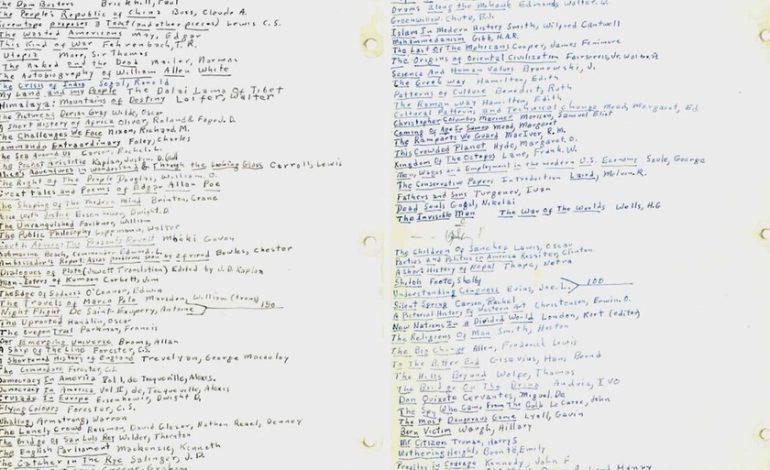 The Dam Busters Brickhill, Paul
The People's Republic of China Buss, Claude A.
Screwtape Proposes a Toast (and other pieces) Lewis C.S.
The Wasted Americans May, Edgar
This Kind of War Fehrenbach, T.R.
Utopia More, Sir Thomas
The Naked and the Dead Mailer, Norman
The Autobiography of William Allen White
The Crisis of India Segal, Ronald
My Land and my People The Dalai Lama Of Tibet
Himalaya: Mountains of Destiny Walter
The Picture of Dorian Gray Wilde, Oscar
A Short History of Africa Oliver, Roland & Fage J.D.
The Challenges We Face Nixon, Richard M.
Commando Extraordinary Foley, Charles
The Sea Around Us Carson, Rachel L.
Kaplan, Justin D.
Alice's Adventures in Wonderland & Through the Looking Glass Carroll, Lewis
The Right Of The People Douglas, William O.
Great Tales and Poems of Edgar Allan Poe
The Shaping Of The Modern Mind Brinton, Crane
Peace With Justice Eisenhower, Dwight D.
The Unvanquished Faulkner, William
The Public Philosophy Lippmann, Walter
Govan
Submarine Beach, Commander Edward L.
Ambassador's Report Bowles, Chester
Dialogues of Plato (Jowett Translation) Edited by J.D. Kaplan
Man-Eaters of Kumaon Corbett, Jim
The Edge of Sadness O'Connor, Edwin
The Travels of Marco Polo Marsden, William (trans)
Night Flight De Saint-Exupery, Antoine 150
The Uprooted Handlin, Oscar
The Oregon Trail Parkman, Francis
Our Emerging Universe Broms, Allan
A Ship Of The Line Forester, C.S.
A Shortened History of England Trevelyan, George Macaulay
The Commodore Forester, C.S.
Democracy In America Vol I, de Tocqueville, Alexis.
Democracy In America Vol II, de Tocqueville, Alexis.
Crusade In Europe Eisenhower, Dwight D.
Flying Colours Forester, C.S.
Whaling Armstrong, Warren
The Lonely Crowd Riesman, David Glazer, Nathan Reuel, Denney
The Bridge of San Luis Rey Wilder, Thornton
The English Parliament Mackenzie, Kenneth
The Catcher in The Rye Salinger, J.D.
Drums Along the Mohawk Edmonds, Walter D.
Greenwillow Chute, B.J.
Islam In Modern History Smith, Wilfred Cantwell
Mohammedanism Gibb, H.A.R.
The Last Of The Mohicans Cooper, James Fenimore
The Origins of Oriental Civilization Fairservis, Jr. Walter A.
Science And Human Values Bronowski, J.
The Greek Way Hamilton, Edith
Patterns of Culture Benedict, Ruth
The Roman Way Hamilton, Edith
Cultural Patterns and Technical Change Mead, Margaret, Ed
Christopher Columbus Mariner Morison, Samuel Eliot
Coming Of Age In Samoa Mead, Margaret
The Ramparts We Guard MacIver, R.M.
This Crowded Planet Hyde, Margaret O.
Kingdom Of The Octopus Lane, Frank W.
Men, Wages and Employment in the Modern U.S. Economy Soule, George
The Conservative Papers Introduction Laird, Melvin R.
Fathers and Sons Turgenev, Ivan
Dead Souls Gogol, Nikolai
The Invisible Man The War Of The Worlds Wells, H.G
The Children Of Sanchez Lewis, Oscar
Parties and Politics in America Rossiter, Clinton
A Short History of Nepal Thapa, Netra
Shiloh Foote, Shelby
Understanding Congress Evins, Joe L. 100
Silent Spring Carson, Rachel
A Pictorial History Of Western Art Christensen, Erwin O.
New Nations In a Divided World London, Kurt (editor)
The Religions Of Man Smith, Huston
The Big Change Allen, Frederick Lewis
To The Bitter End Gisevius, Hans Bernd
The Hills Beyond Wolfe, Thomas
The Bridge On The Drina Andric, IVO
Don Quixote Cervantes, Miguel De
The Spy Who Came From The Cold Le Carre, John
The Most Dangerous Game Lyall, Gavin
Born Victim Waugh, Hillary
Mr. Citizen Truman, Harry S
Wuthering Heights Bronte, Emily
Profiles in Courage Kennedy, John F
Henry